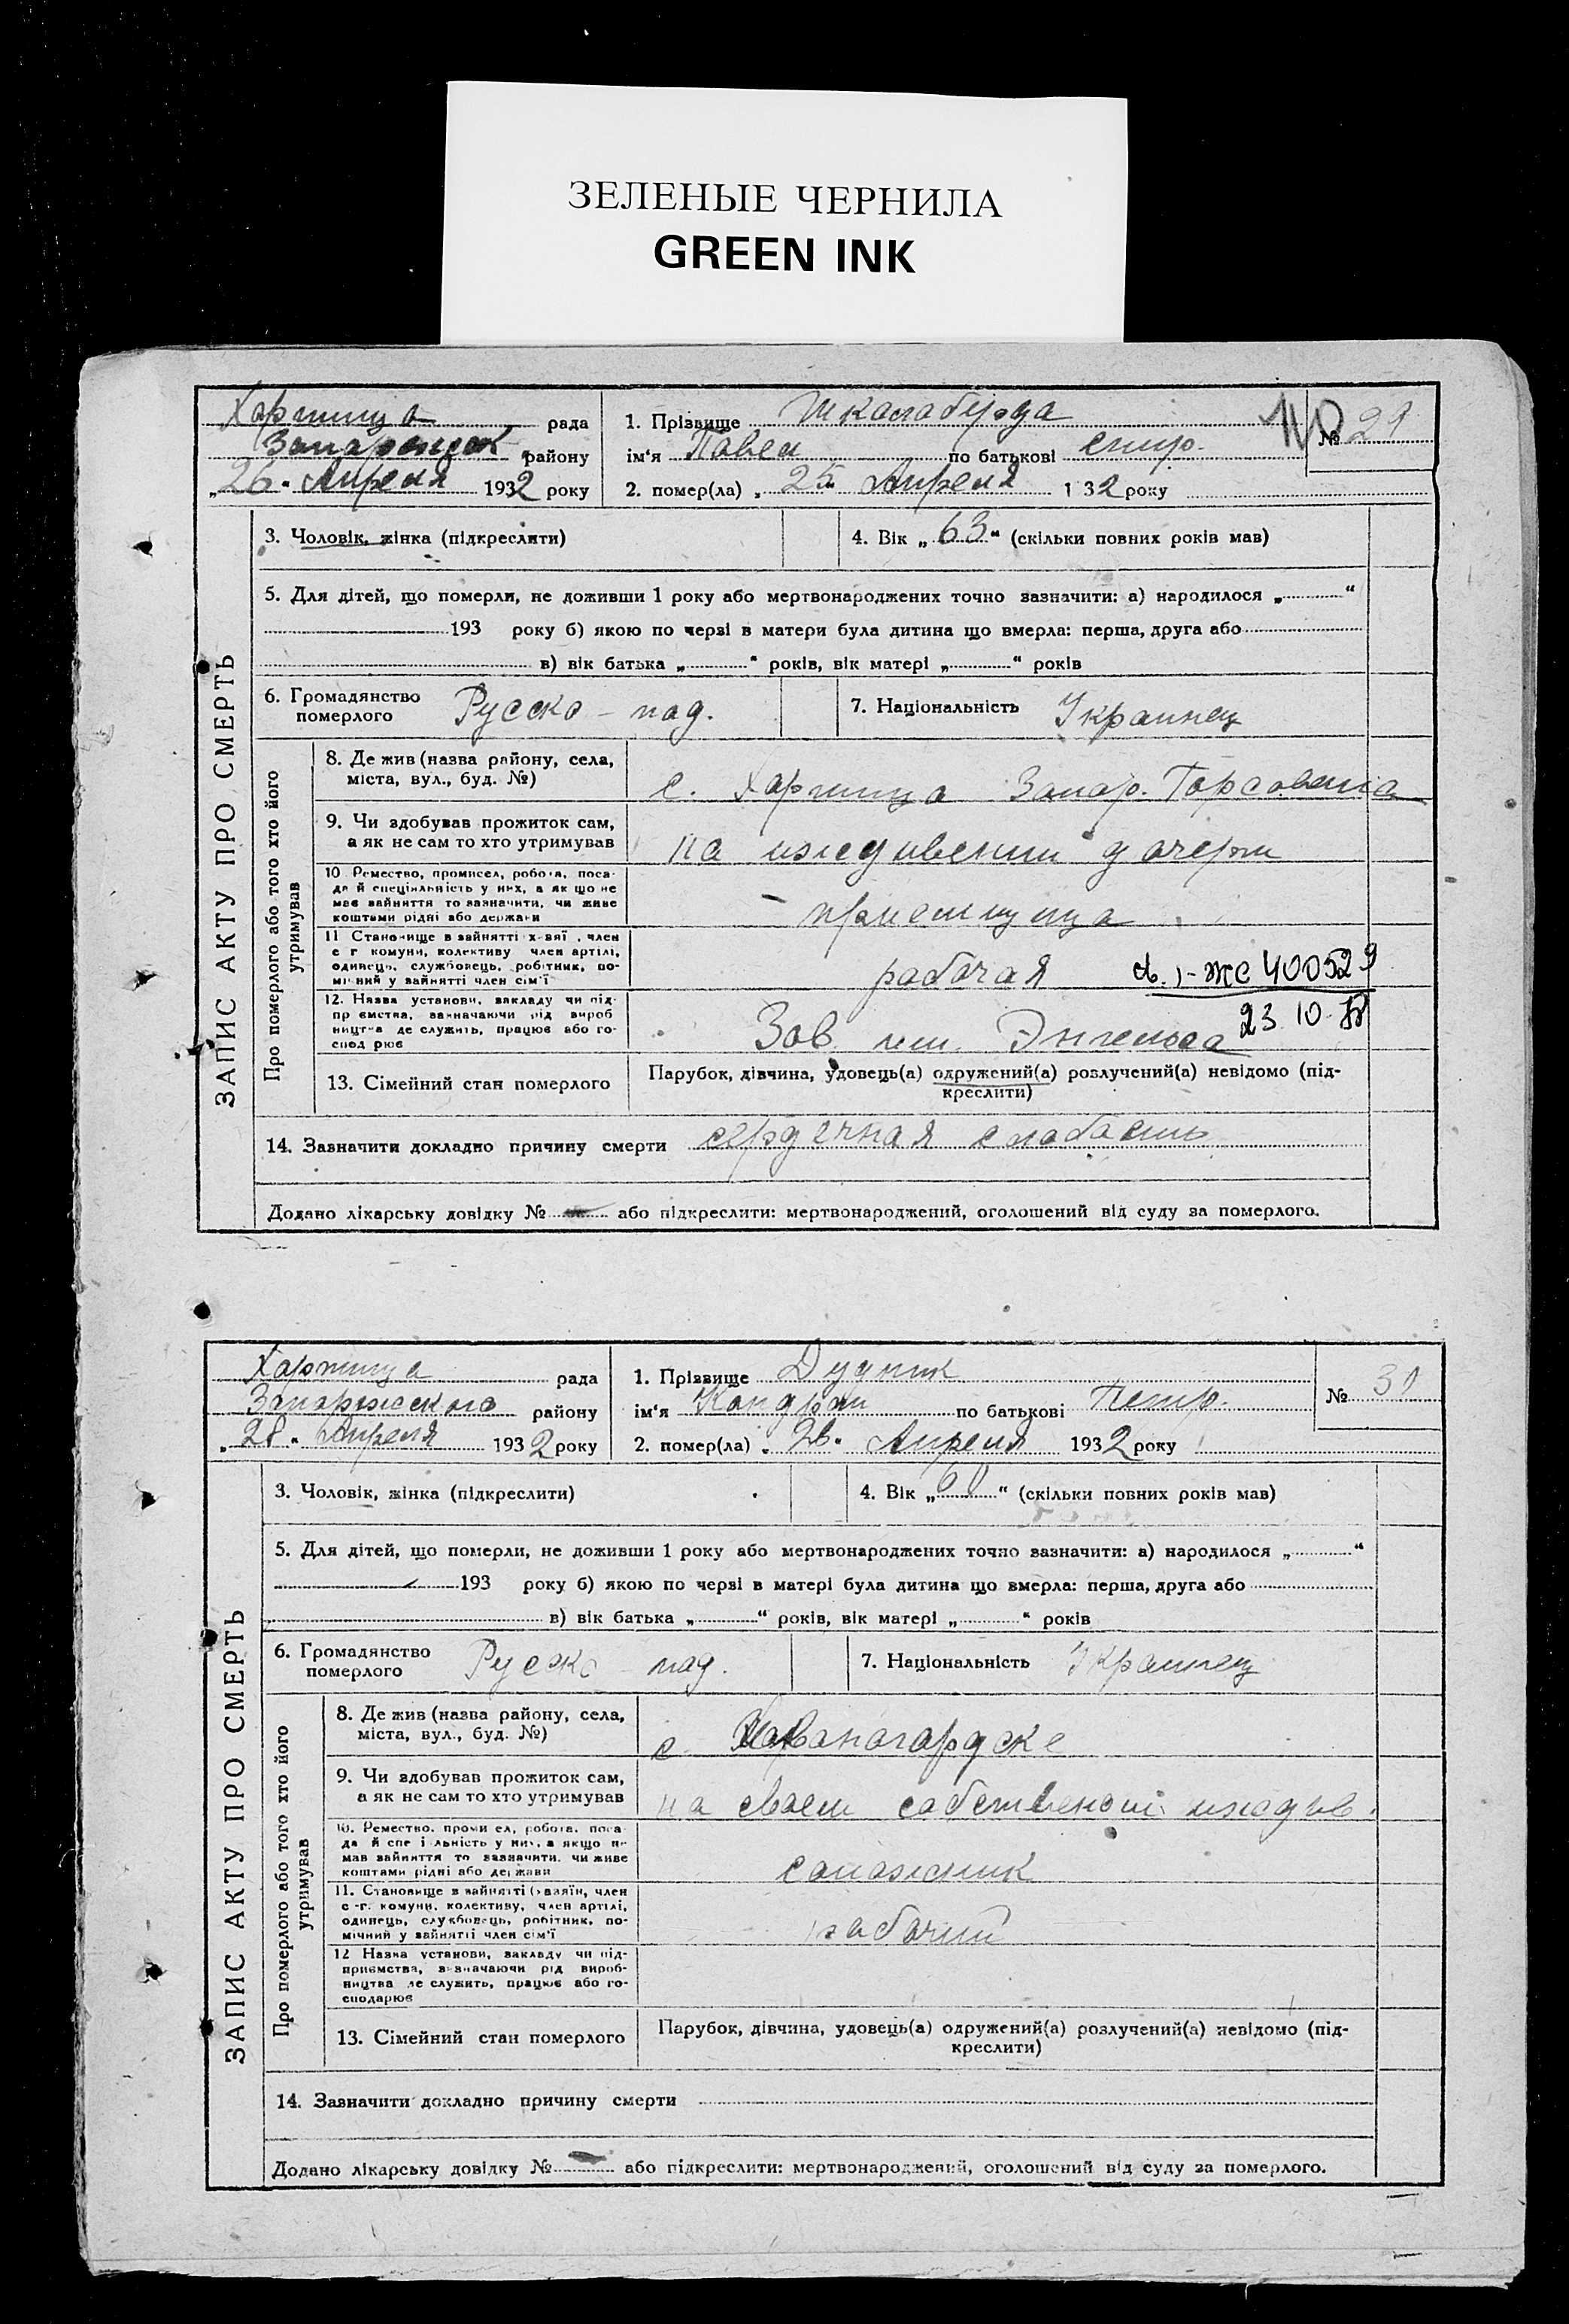 ЗЕЛЕНЫЕ ЧЕРНИЛА
GREEN INK
ЗАПИС АКТУ ПРО СМЕРТЬ
Хортица рада
району
„26“ Апреля 1932 року
1. Прізвище Шкалабурда
ім'я Павел по батькові
№ 29
2. помер(ла) „25“ Апреля 1 32 року
3. Чоловік, жінка (підкреслити)
4. Вік „63“ (скільки повних років мав)
5. Для дітей, що померли, не доживши 1 року або мертвонароджених точно зазначити: а) народилося „ “
193 року б) якою по черзі в матери була дитина що вмерла: перша, друга або
в) вік батька „ “ років, вік матері „ “ років
6. Громадянство
померлого
Русско - под.
7. Національність Украинец
Про померлого або того хто його
утримував
8. Де жив (назва району, села,
міста, вул., буд. №)
с. Хортица Запор. Горсовета
9. Чи здобував прожиток сам,
а як не сам то хто утримував
на иждивении дочери
10 Ремество, промисел, робота, поса-
да й спеціяльність у них, а як що не
має зайняття то зазначити, чи живе
коштами рідні або держави
11 Становище в зайнятті х-зяї , член
с г комуни, колективу член артілі,
одинець, службовець, робітник, по-
мічний у зайнятті член сім'ї
рабочая
ЖС 400529
12. Назва установи, закладу чи під-
пр ємства, зазначаючи рід вироб
ництва де служить, працює або го-
спод рює
Зов. им. Энгельса
23 10
13. Сімейний стан померлого
Парубок, дівчина, удовець(а) одружений(а) розлучений(а) невідомо (під-
креслити)
14. Зазначити докладно причину смерти сердечная слабость
Додано лікарську довідку № або підкреслити: мертвонароджений, оголошений від суду за померлого.
ЗАПИС АКТУ ПРО СМЕРТЬ
Хортица рада
Запорожского району
„28“ Апреля 1932 року
1. Прізвище Дудник
ім'я Кондрат по батькові Петр.
№ 30
2. помер(ла) „26“ Апреля 1932 року
3. Чоловік, жінка (підкреслити)
4. Вік „60“ (скільки повних років мав)
5. Для дітей, що померли, не доживши 1 року або мертвонароджених точно зазначити: а) народилося „ “
193 року б) якою по черзі в матері була дитина що вмерла: перша, друга або
в) вік батька „ “ років, вік матері „ “ років
6. Громадянство
померлого
Русско под.
7. Національність Украинец
Про померлого або того хто його
утримував
8. Де жив (назва району, села,
міста, вул., буд. №)
с
9. Чи здобував прожиток сам,
а як не сам то хто утримував
на своем собственом иждив.
10. Ремество, промисел, робота, поса-
да й спеціяльність у них, а якщо не
має зайняття то зазначити, чи живе
коштами рідні або держави
сапожник
11. Становище в зайнятті (хазяїн, член
с-г. комуни, колективу, член артілі,
одинець, службовець, робітник, по-
мічний у зайнятті член сім'ї
рабочий
12 Назва установи, закладу чи під-
приємства, зазначаючи рід вироб-
ництва де служить, працює або го-
сподарює
13. Сімейний стан померлого
Парубок, дівчина, удовець(а) одружений(а) розлучений(а) невідомо (під-
креслити)
14. Зазначити докладно причину смерти
Додано лікарську довідку № або підкреслити: мертвонароджений, оголошений від суду за померлого.